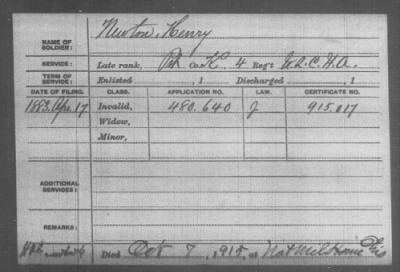 NAME OF SOLDIER: Newton, Henry
SERVICE: Late rank, Pvt Co. K, 4 Reg't U.S.C.H.A.
TERM OF SERVICE: Enlisted , 1 Discharged , 1
DATE OF FILING. CLASS. APPLICATION NO. LAW. CERTIFICATE NO.
1883, Apr. 17 Invalid, 480.640 J 915.017
Widow,
Minor,
ADDITIONAL SERVICES:
REMARKS:
Died Oct 7, 1915, at Nat Mil Home